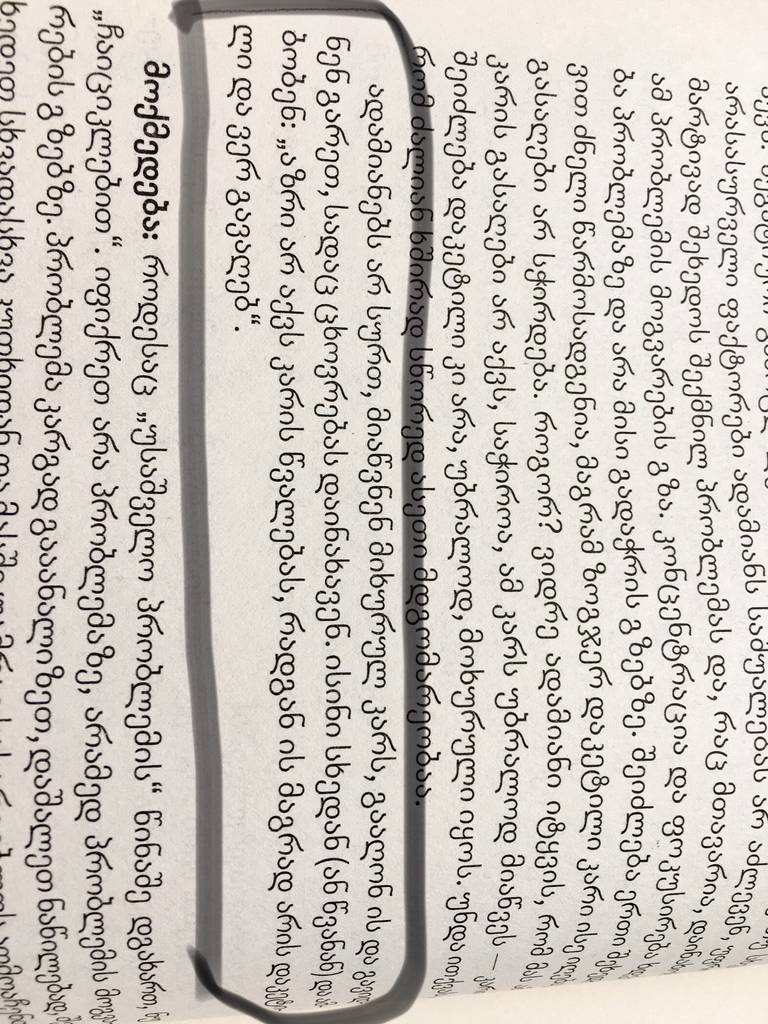 არასასურველი ფაქტორები ადამიანს საშუალებას არ აძლევენ,
მარტივად შეხედოს შექმნილ პრობლემას და, რაც მთავარია,
ამ პრობლემის მოგვარების გზა. კონცენტრაცია და ფოკუსირება
ბა პრობლემაზე და არა მისი გადაჭრის გზებზე. შეიძლება ერთი
ვით ძნელი წარმოსადგენია, მაგრამ ზოგჯერ დაკეტილი კარი ისე
გასაღები არ სჭირდება. როგორ? ვიდრე ადამიანი იტყვის, რომ
კარის გასაღები არ აქვს, საჭიროა, ამ კარს უბრალოდ მიაწვეს –
შეიძლება დაკეტილი კი არა, უბრალოდ, მოხურული იყოს. უნდა
რომ ძალიან ხშირად სწორედ ასეთი მდგომარეობაა.
ადამიანებს არ სურთ, მიაწვნენ მიხურულ კარს, გააღონ ის და
ნენ გარეთ, სადაც ცხოვრებას დაინახავენ. ისინი სხედან (ან წვანან)
ბობენ: „აზრი არ აქვს კარის წვალებას, რადგან ის მაგრად არის დაკეტი-
ლი და ვერ გავაღებ“.
მოქმედება: როდესაც „უსაშველო პრობლემის“ წინაშე დგახართ,
„ჩაიციკლებით“. იფიქრეთ არა პრობლემაზე, არამედ პრობლემის
რების გზებზე. პრობლემა კარგად გააანალიზეთ, დაშალეთ ნაწილებად,